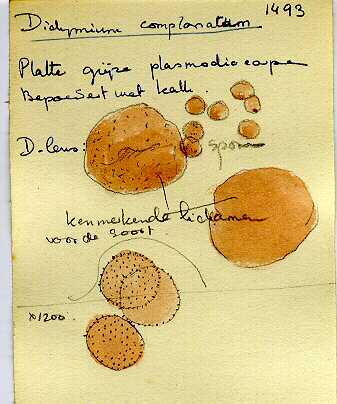 1493
Didymium complanatum
Platte grijze plasmodiocarpen
Bepoederd met kalk.
D-lens:
sporen
kenmerkende lichamen
voor de soort
x1200.